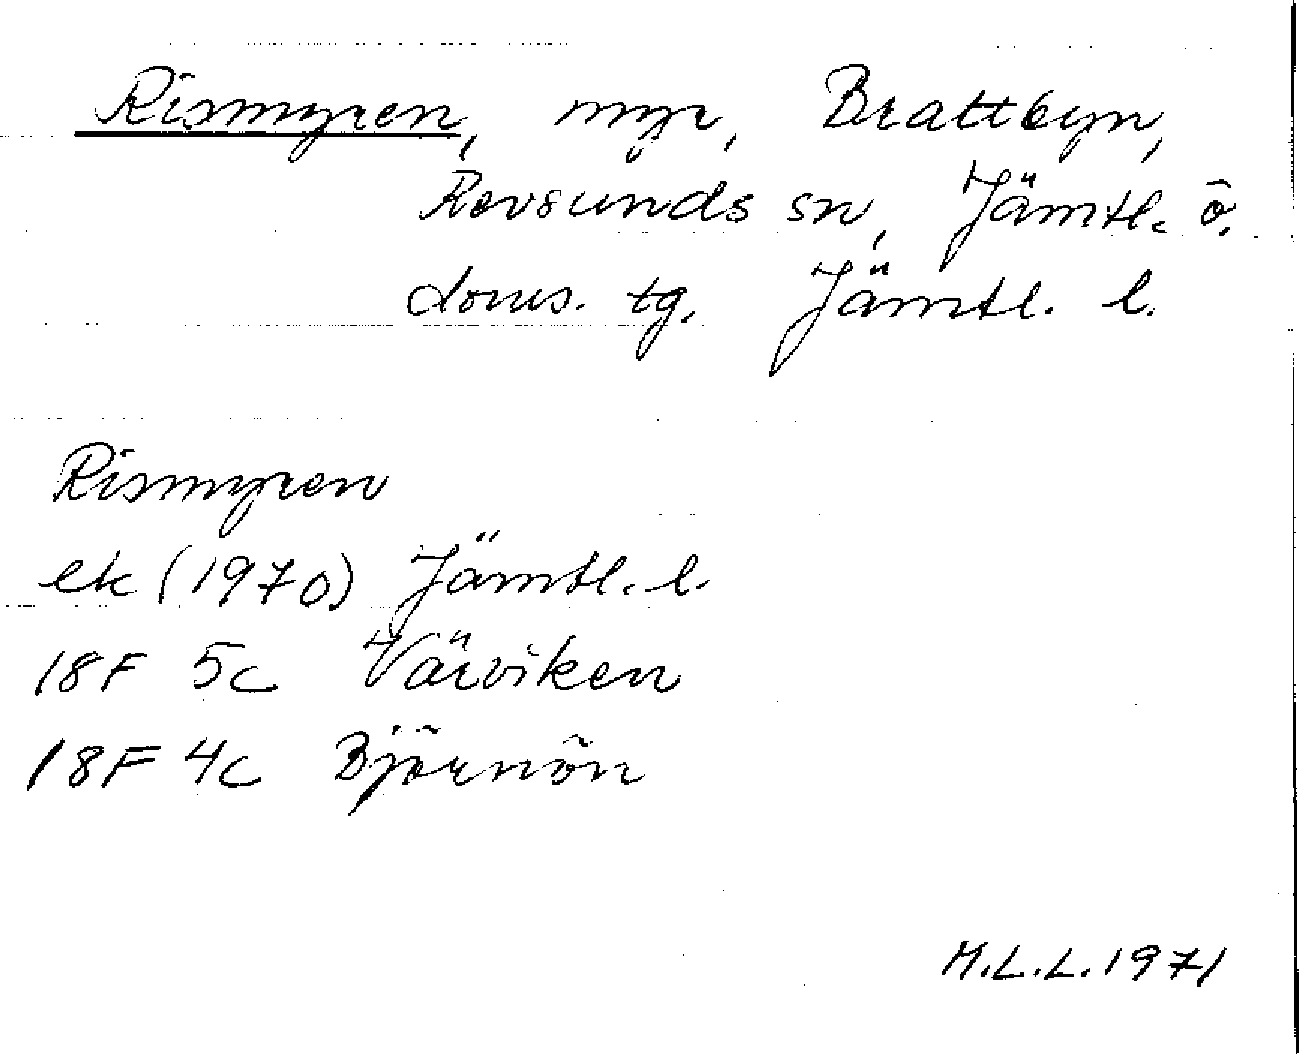 Rismyren, myr, Brattbyn,
Revsunds sn, Jämtl. ö.
doms. tg, Jämtl. l.
Rismyren
ek (1970) Jämtl. l.
18F 5c Värviken
18F 4c Björnön
M.L.L. 1971